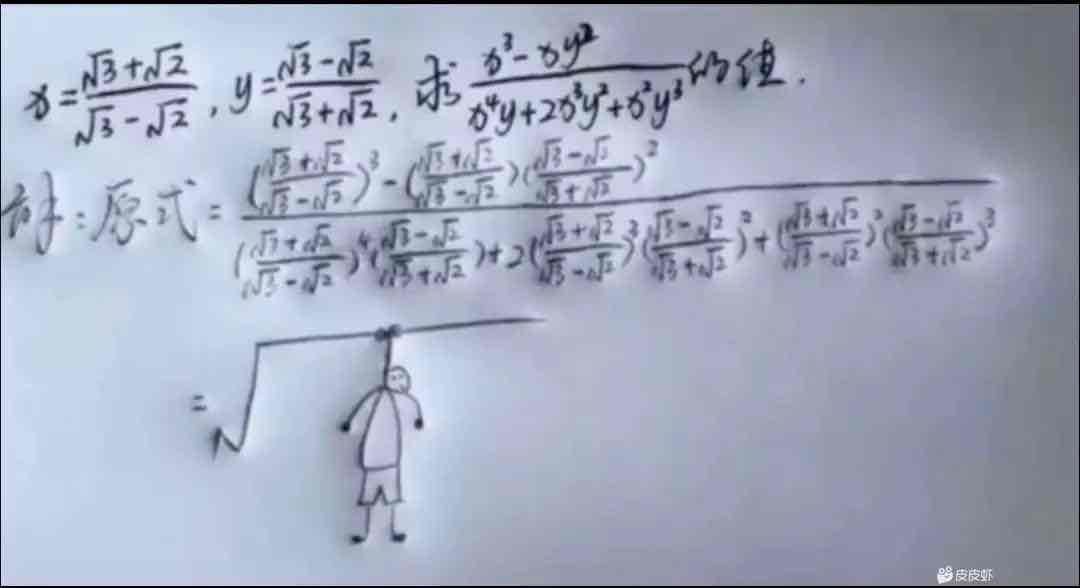 x=(√3+√2)/(√3-√2), y=(√3-√2)/(√3+√2), 求 (x³-xy²)/(x⁴y+2x³y²+x²y³) 的值.
解:原式=(((√3+√2)/(√3-√2))³-((√3+√2)/(√3-√2))((√3-√2)/(√3+√2))²)/(((√3+√2)/(√3-√2))⁴((√3-√2)/(√3+√2))+2((√3+√2)/(√3-√2))³((√3-√2)/(√3+√2))²+((√3+√2)/(√3-√2))²((√3-√2)/(√3+√2))³)
=√
皮皮虾